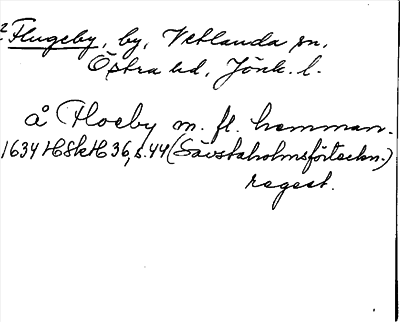 2 Flugeby, by, Vetlanda sn,
Östra hd, Jönk. l.
å Floeby m. fl. hemman.
1634 HSkH 36, s. 44 (Sävstaholmsförteckn.)
regest.